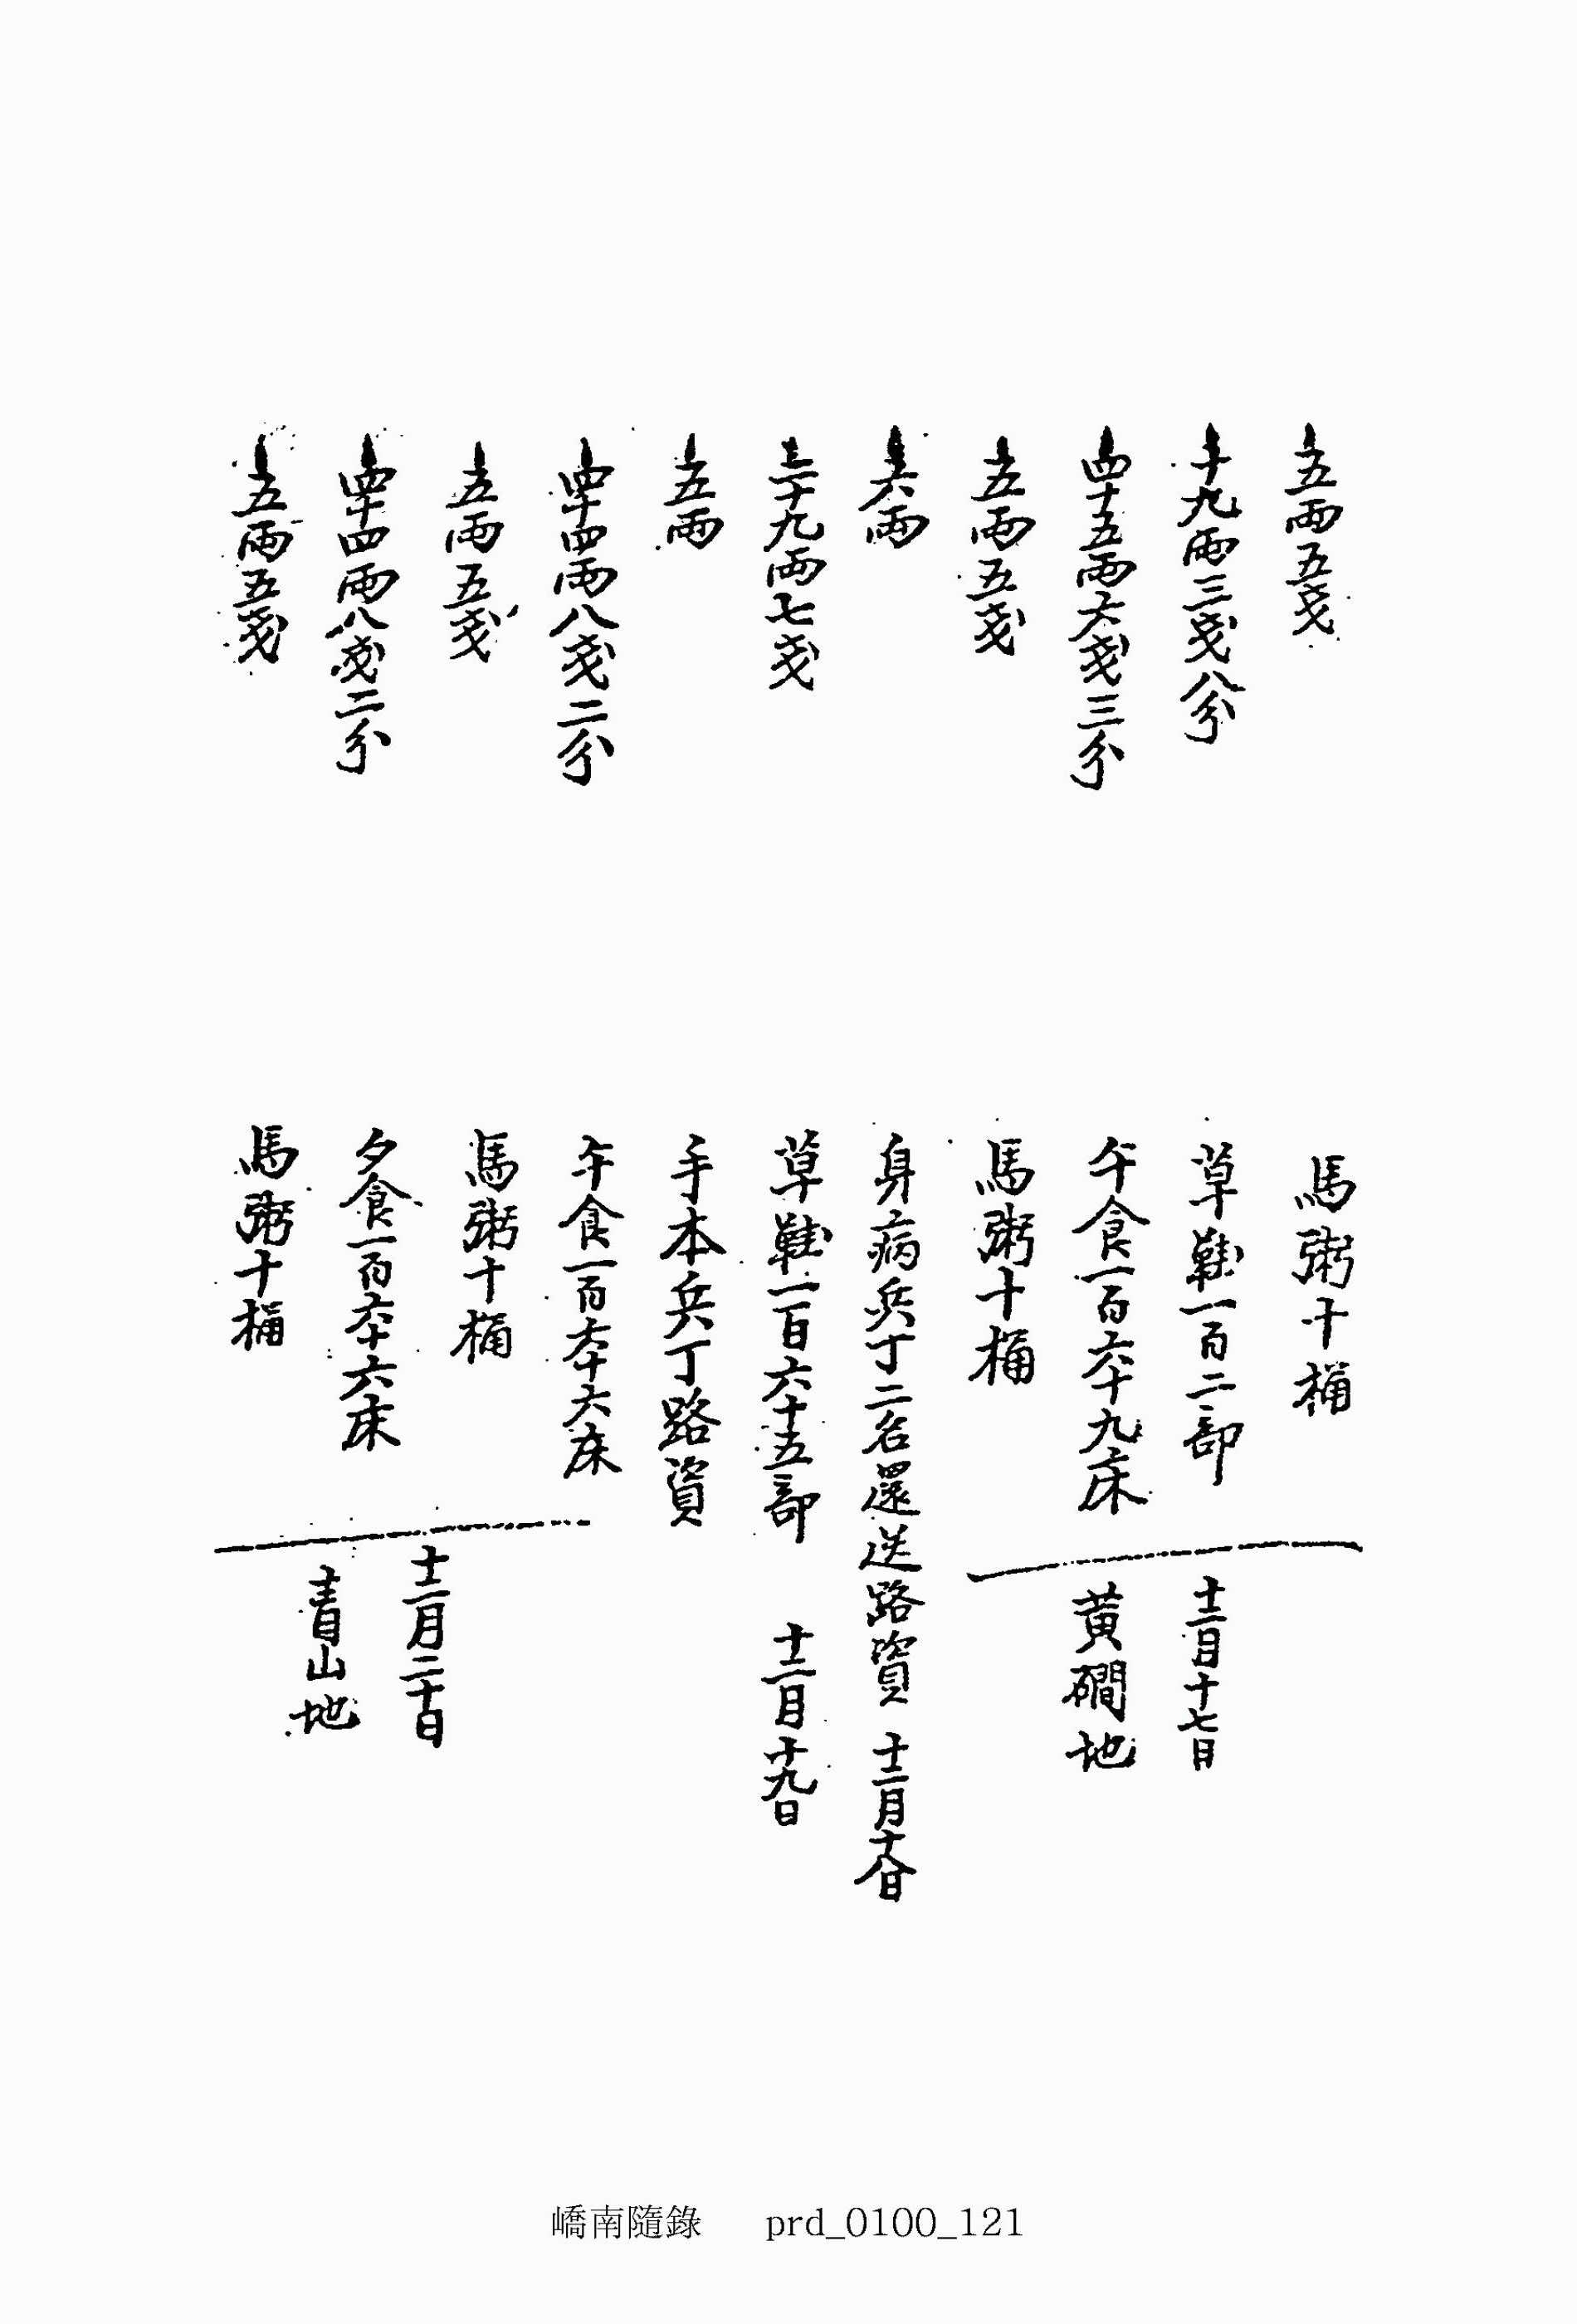 五兩五戔 馬粥十桶
十九兩三戔八分 草鞋一百二部
四十五兩六戔三分 午食一百六十九床
五兩五戔 馬粥十桶
十二月十七日
黃磵地
六兩 身病兵丁二名還送路資 十二月十八日
二十九兩七戔 草鞋一百六十五部 十二月十九日
五兩 手本兵丁路資
四十四兩八戔二分 午食一百六十六床
五兩五戔 馬粥十桶
四十四兩八戔二分 夕食一百六十六床
五兩五戔 馬粥十桶
十二月二十日
青山地
嶠南隨錄 prd_0100_121